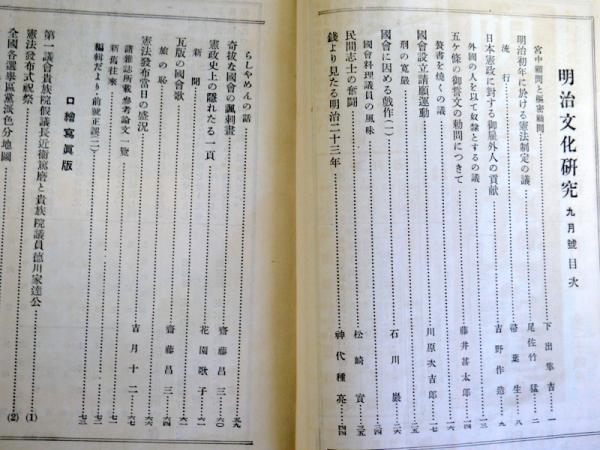 明治文化研究 九月號目次
宮中顧問と樞密顧問 下出隼吉 一
明治初年に於ける憲法制定の議 尾佐竹猛 二
流行 蒂葉生 八
日本憲政に對する御雇外人の貢獻 吉野作造 九
外國の人を以て奴隷とするの議
五ケ條の御誓文の勅問につきて 藤井甚太郎 一四
賛書を燒くの議
國會設立請願運動 川原次吉郎 一七
刑の寛嚴
國會に因める戲作(一) 石川巖 二六
國會料理議員の風味 三四
民間志士の奮鬪 松崎實 三五
錢より見たる明治二十三年 神代種亮 四四
らしやめんの話 五九
奇拔な國會の諷刺畫 齋藤昌三 六〇
憲政史上の隱れたる一頁 花園歌子 六一
新聞
瓦版の國會歌 齋藤昌三 六四
旅の恥 六六
憲法發布當日の盛況 吉月十二 六七
諸雜誌所載參考論文一覽
新舊往來 七一
編輯だより・前號正誤(二) 七三
口繪寫眞版
第一議會貴族院假議長近衞篤麿と貴族院議員德川家達公 (1)
憲法發布式祝祭
全國各選擧區黨派色分地圖 (2)